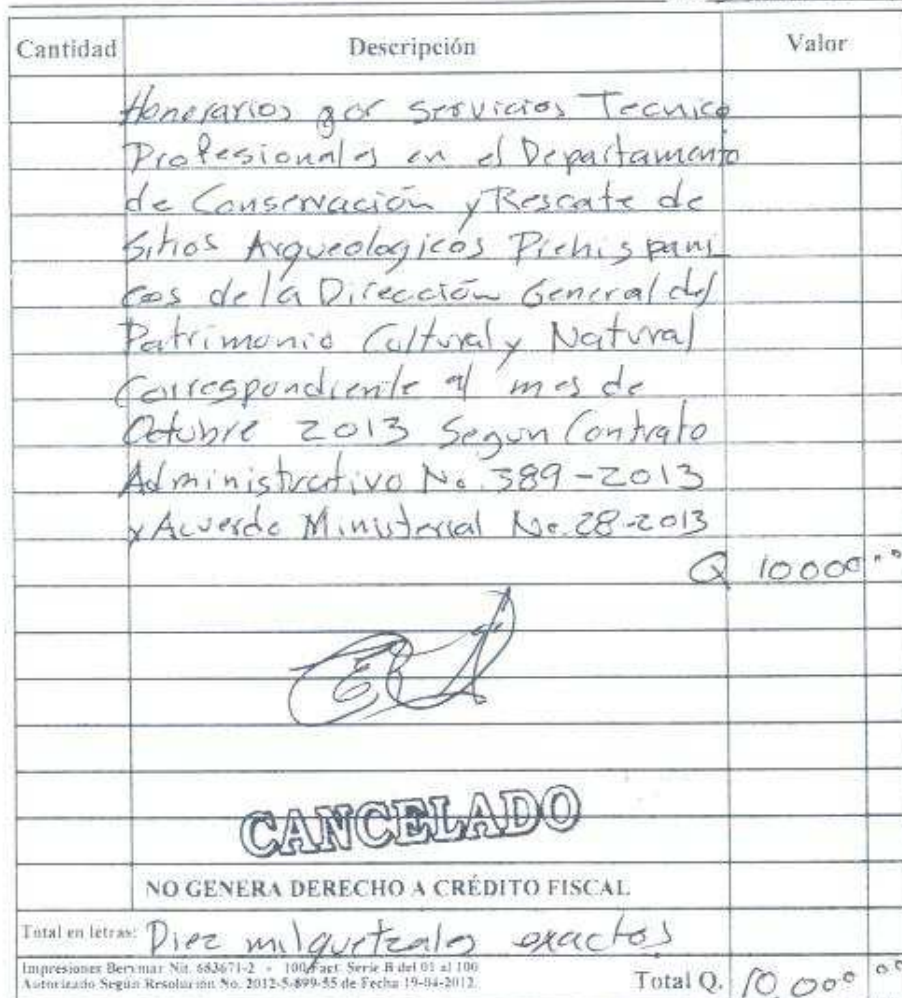 Cantidad Descripción Valor
Honorarios por Servicios Tecnico
Profesionales en el Departamento
de Conservación y Rescate de
Sitios Arqueologicos Prehispani
cos de la Dirección General del
Patrimonio Cultural y Natural
Correspondiente al mes de
Octubre 2013 Segun Contrato
Administrativo No. 389-2013
y Acuerdo Ministerial No. 28-2013
Q 10000.00
CANCELADO
NO GENERA DERECHO A CRÉDITO FISCAL
Total en letras: Diez mil quetzales exactos
Impresiones Berymar Nit. 683671-2 - 100 Fact. Serie B del 01 al 100
Autorizado Según Resolución No. 2012-5-899-55 de Fecha 19-04-2012.
Total Q. 10,000 00